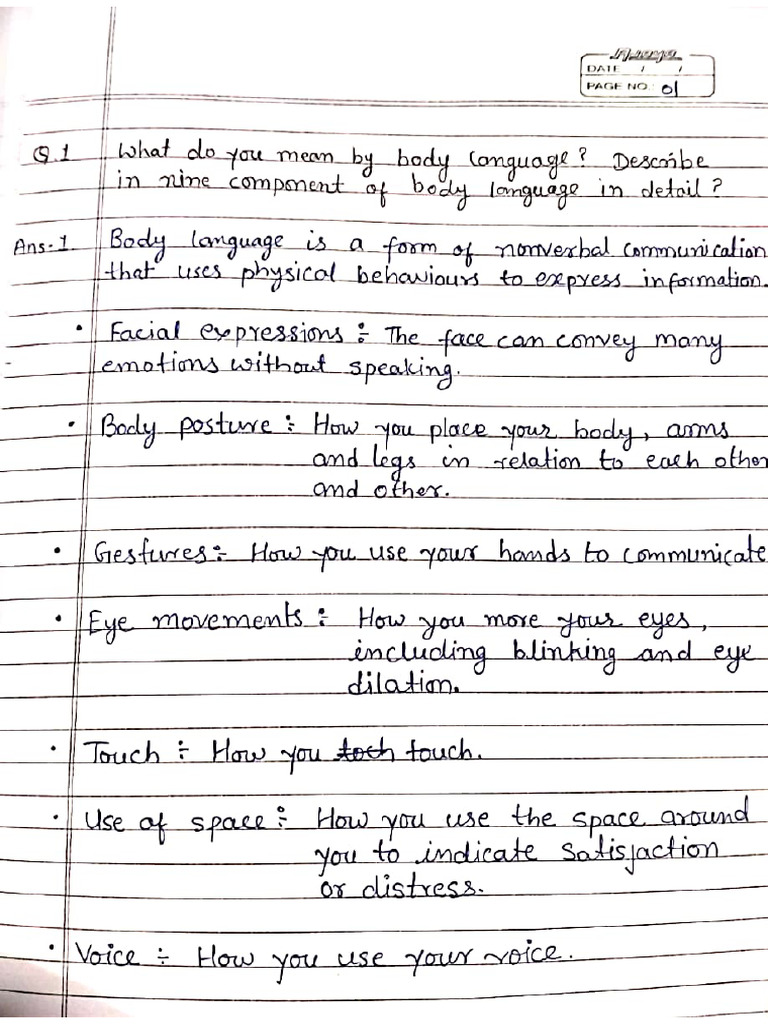 DATE / /
PAGE NO.: 01
Q.1 What do you mean by body language? Describe
in nine component of body language in detail?
Ans-1 Body language is a form of nonverbal communication
that uses physical behaviours to express information.
• Facial expressions ÷ The face can convey many
emotions without speaking.
• Body posture ÷ How you place your body, arms
and legs in relation to each other
and other.
• Gestures ÷ How you use your hands to communicate
• Eye movements ÷ How you more your eyes,
including blinking and eye
dilation.
• Touch ÷ How you toch touch.
• Use of space ÷ How you use the space around
you to indicate satisjaction
or distress.
• Voice ÷ How you use your voice.